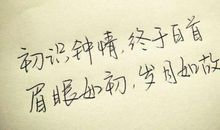 初识钟情，终于白首
眉眼如初，岁月如故